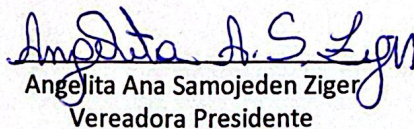 Angelita A. S. Ziger
Angelita Ana Samojeden Ziger
Vereadora Presidente